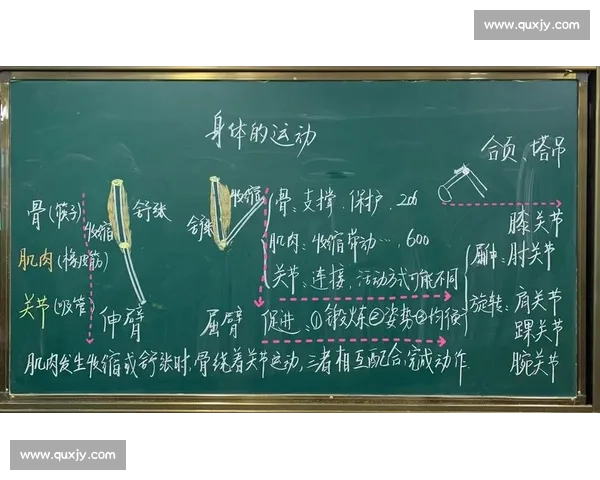 www.quxjy.com
身体的运动
合页、塔吊
骨(筷子)
肌肉(橡皮筋)
关节(吸管)
收缩
舒张
伸臂
舒张
收缩
屈臂
骨:支撑、保护、206
肌肉:收缩带动…,600
关节:连接、活动方式可能不同
促进:①锻炼②姿势③均衡
屈伸:
膝关节
肘关节
旋转:
肩关节
踝关节
腕关节
肌肉发生收缩或舒张时,骨绕着关节运动,三者相互配合,完成动作.
www.quxjy.com